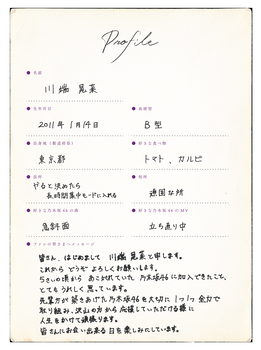 Profile
名前
川端 晃菜
生年月日
2011年 1月14日
血液型
B型
出身地（都道府県）
東京都
好きな食べ物
トマト、カルビ
長所
やると決めたら
長時間集中モードに入れる
短所
頑固な所
好きな乃木坂46の曲
急斜面
好きな乃木坂46のMV
立ち直り中
ファンの皆さまへメッセージ
皆さん、はじめまして 川端 晃菜と申します。
これから どうぞ よろしくお願いします。
5さいの頃から あこがれていた 乃木坂46に加入できたこと、
とてもうれしく思っています。
先輩方が 築きあげた乃木坂46を大切に 1つ1つ 全力で
取り組み、沢山の方から 応援していただける様に
人生をかけて頑張ります。
皆さんにお会い出来る日を 楽しみにしています。